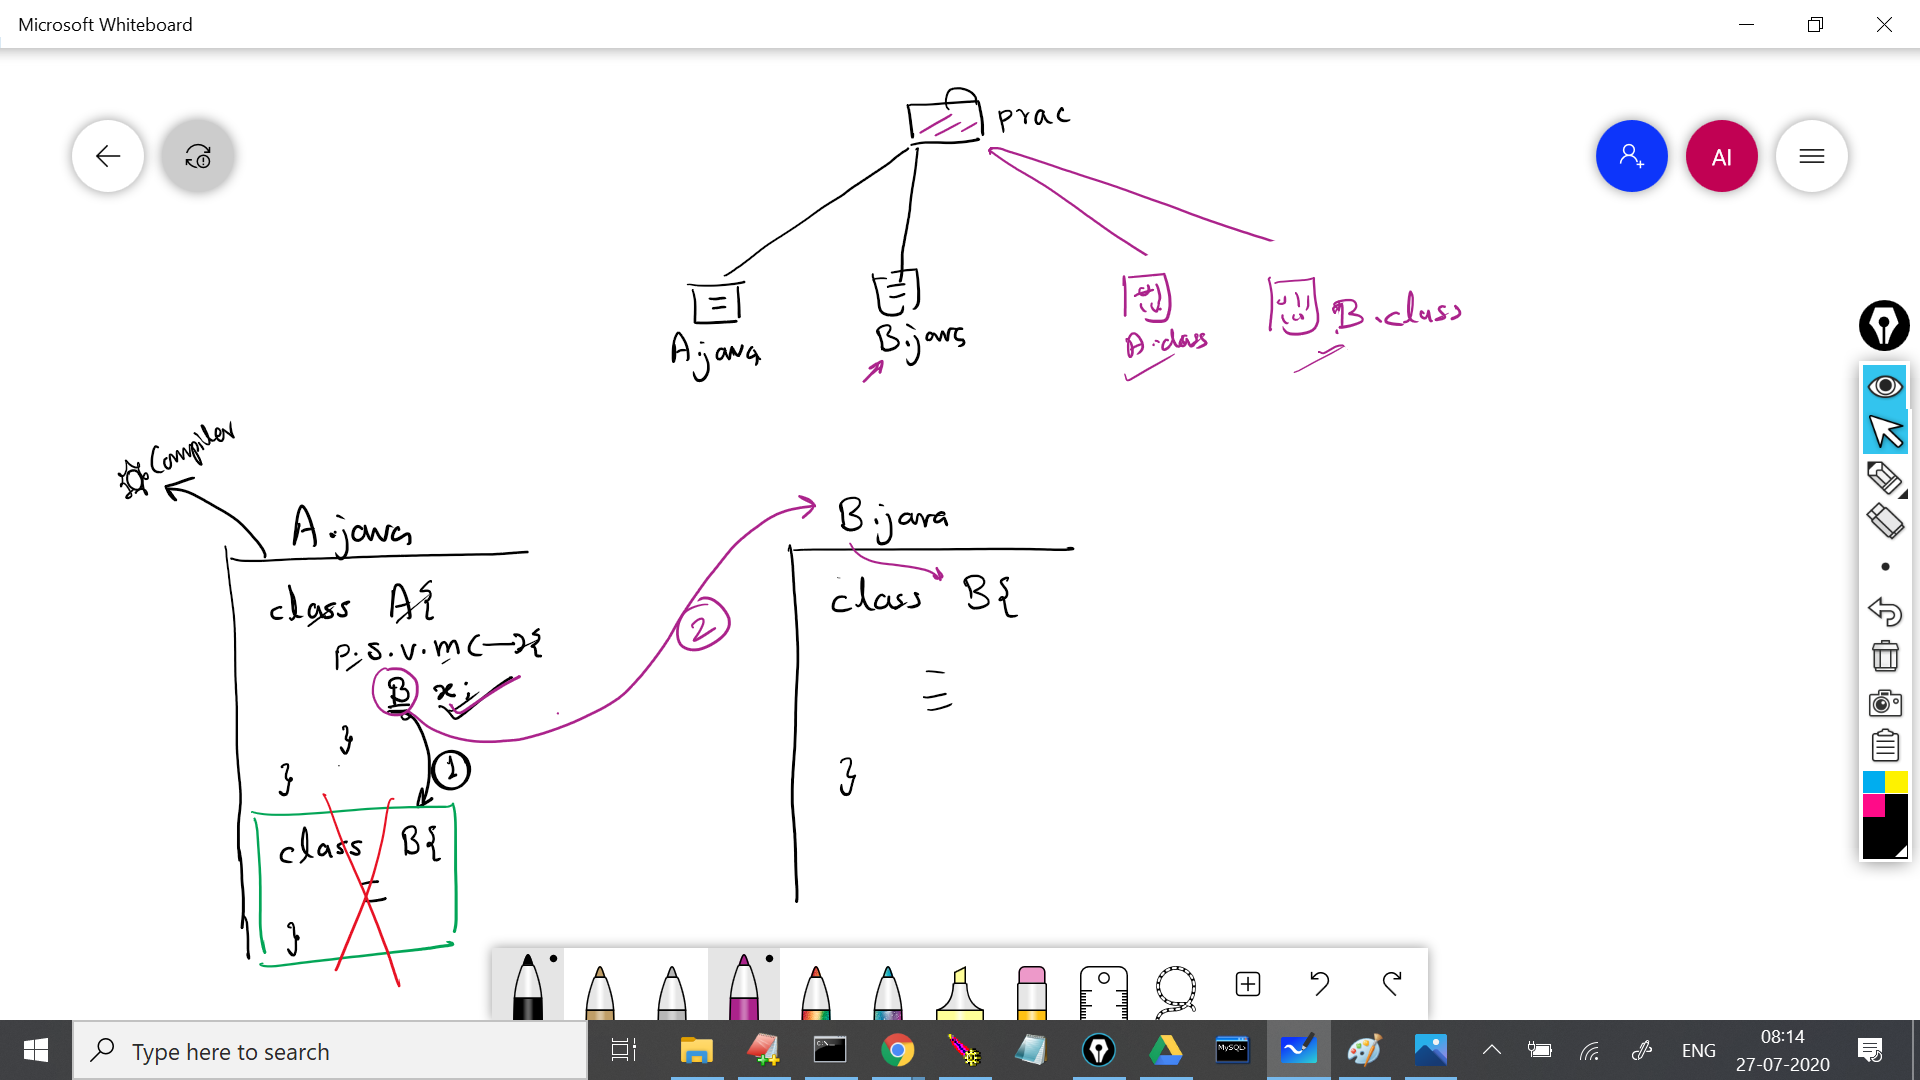 Microsoft Whiteboard
prac
AI
A.java
B.java
A.class
B.class
Compiler
A.java
class A{
p.s.v.m(—){
B x;
}
}
1
class B{
}
2
B.java
class B{
}
Type here to search
MySQL
ENG
08:14
27-07-2020